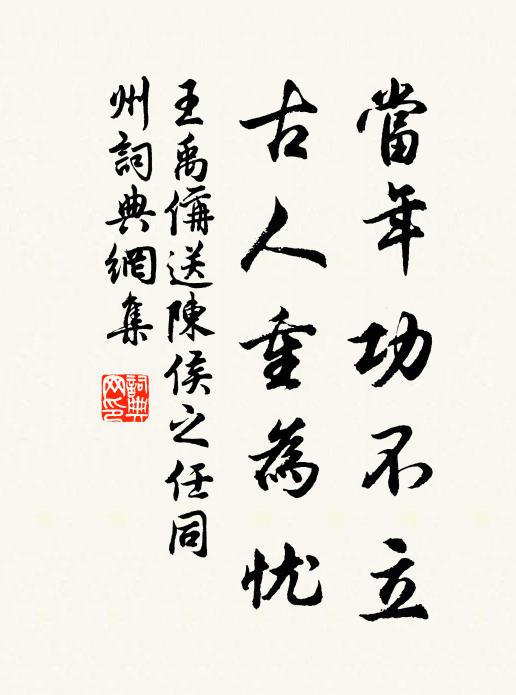 當年功不立
古人重為忧
王禹偁送陳侯之任同
州詞典網集
詞典网印